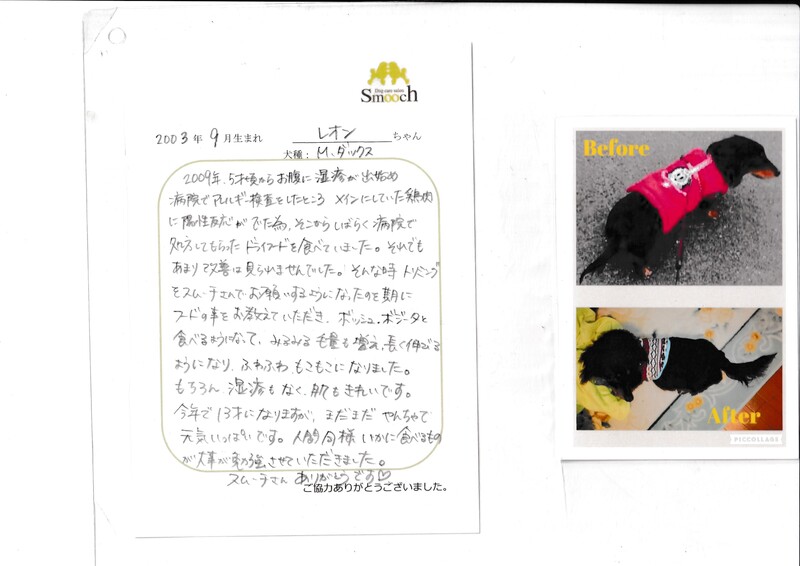 Dog care salon
Smooch
2003年 9月生まれ レオン ちゃん
犬種：M、ダックス
2009年、5才頃からお腹に湿疹が出始め
病院でアレルギー検査をしたところ メインにしていた鶏肉
に陽性反応がでた為、そこからしばらく病院で
処方してもらったドライフードを食べていました。それでも
あまり改善は見られませんでした。そんな時トリミング
をスムーチさんでお願いするようになったのを期に
フードの事をお教えていただき、ボッシュ、ボジータと
食べるようになって、みるみる毛量も増え、長く伸びる
ようになり、ふわふわ もこもこになりました。
もちろん 湿疹もなく、肌もきれいです。
今年で13才になりますが、まだまだ やんちゃで
元気いっぱいです。人間同様 いかに食べるもの
が大事か勉強させていただきました。
スムーチさん ありがとうです♡
ご協力ありがとうございました。
Before
After
PICCOLLAGE